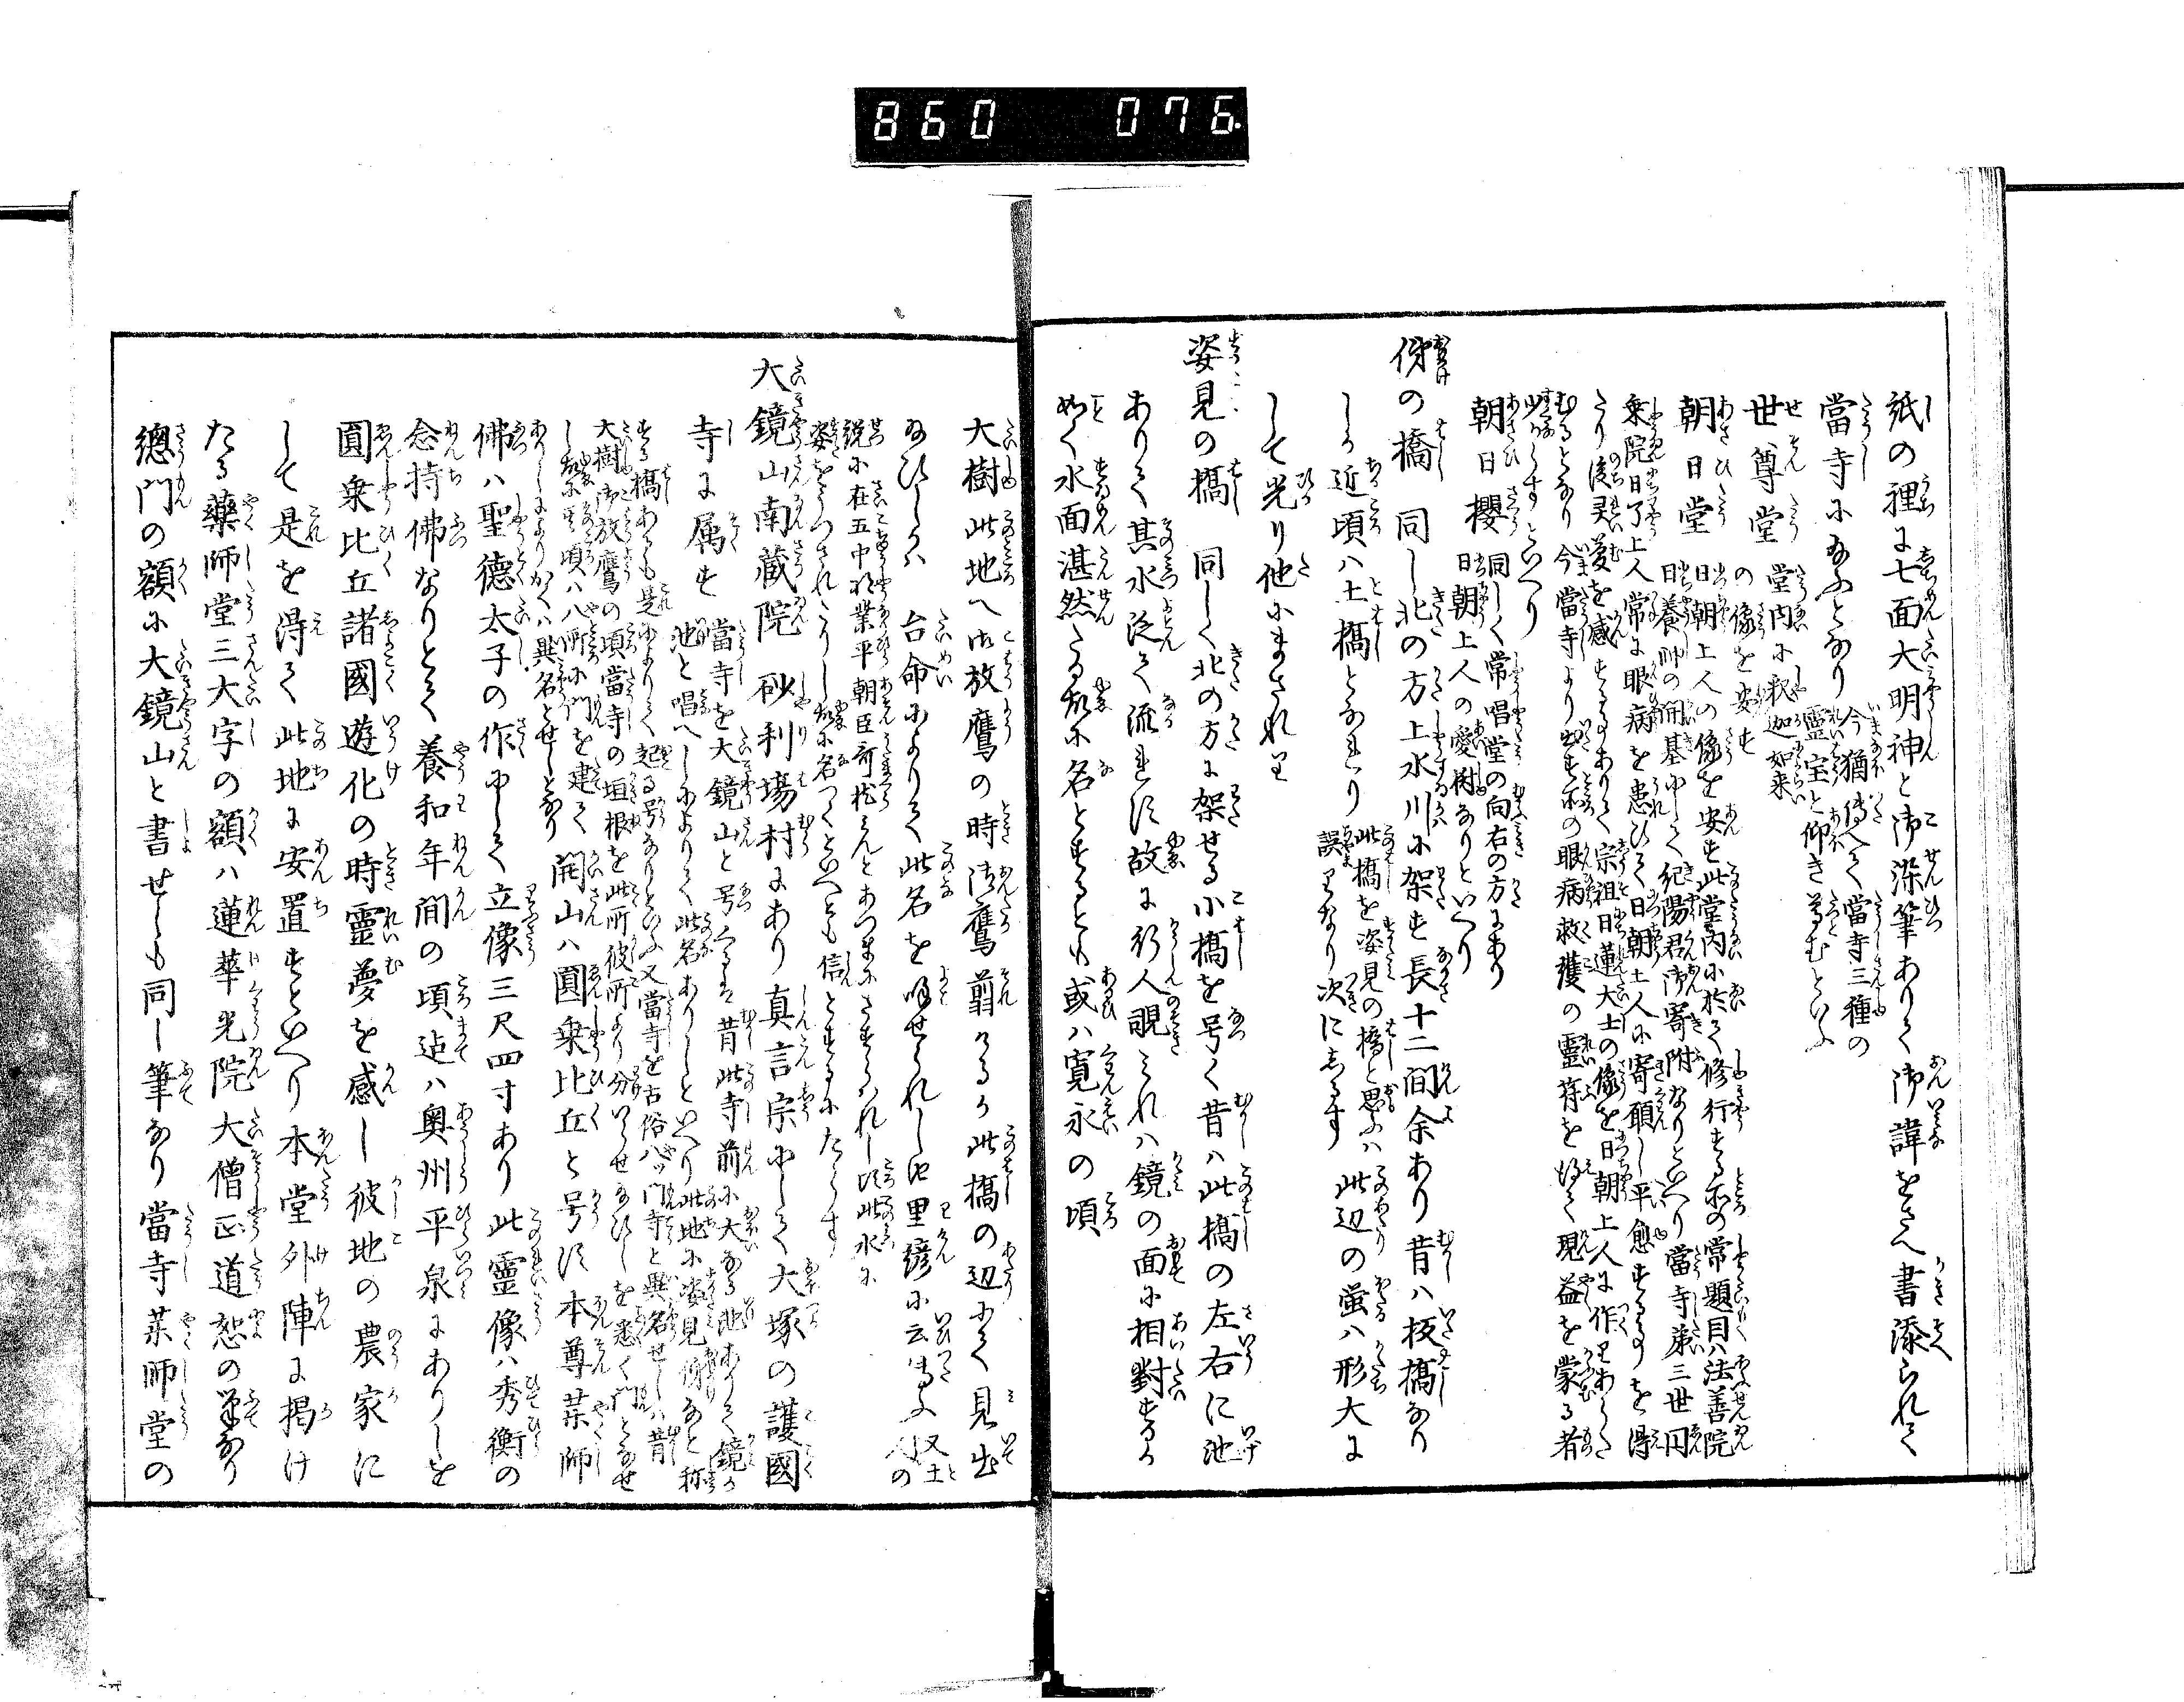 860 076
紙の裡に七面大明神と御染筆ありて御諱をさへ書添られて
當寺に
今猶傳へて當寺三種の
靈宝と仰き尊むといふ
世尊堂
堂内に釈迦如来
の像を安す
朝日堂
日朝上人の像を安す此堂内に於て修行する所の常題目ハ法善院
日養師の開基にして紀陽君御寄附なりといへり當寺第三世円
乗院日了上人常に眼病を患ひて日朝上人に寄願し平愈する事を得
たり後霊夢を感する事ありて宗祖日蓮大士の像を日朝上人に作りあらた
むるとなり今當寺より出す所の眼病救護の靈符を得て現益を蒙る者
少からすといへり
朝日櫻
同しく常唱堂の向右の方にあり
日朝上人の愛樹なりといへり
俤の橋 同し北の方上水川に架す長十二間余あり昔ハ板橋なり
しか近頃ハ土橋となれり
此橋を姿見の橋と思ふハ
誤りなり次にしるす
此辺の蛍ハ形大に
して光り他にまされり
姿見の橋 同しく北の方に架せる小橋を号く昔ハ此橋の左右に池
ありて其水淀て流れす故に行人覗これハ鏡の面に相對するか
如く水面湛然たる故に名とするとも或ハ寛永の頃
大樹此地へ御放鷹の時御鷹翦けるか此橋の辺にて見出
給ひしかハ 台命によりて此名を唤せられしと里諺に云傳ふ
又土人の
説に在五中将業平朝臣
姿をうつされたりし故に名つくといへとも信とするにたらす
大鏡山南蔵院 砂利場村にあり真言宗にして大塚の護國
寺に属す
當寺を大鏡山と号くるハ昔此寺前に大なる池ありて鏡か
池と唱へしによりて此名ありしといへり此地に姿見俤なと称
する橋あるも是によりて起る号なりといふ又當寺を古俗八ツ門寺と異名せしハ昔
大樹御放鷹の頃當寺の垣根を此所彼所より分いらせ給ひしを悉く門となせ
し故に其頃ハ八所に門を建て
ありしによりかくハ異名とせしとなり
開山ハ圓乗比丘と号す本尊薬師
佛ハ聖德太子の作にして立像三尺四寸あり此靈像ハ秀衡の
念持佛なりとそ養和年間の頃迠ハ奥州平泉にありしを
圓乗比丘諸國遊化の時靈夢を感し彼地の農家に
して是を得て此地に安置すといへり本堂外陣に掲け
たる藥師堂三大字の額ハ蓮華光院大僧正道恕の筆なり
總門の額に大鏡山と書せしも同し筆なり當寺薬師堂の